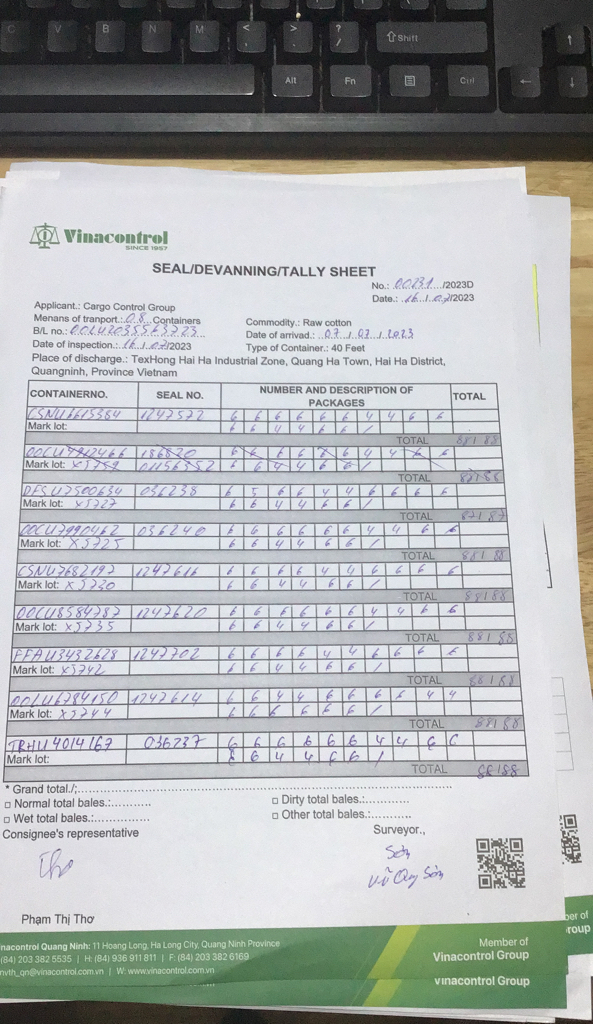 C V B N M < , > . ? / ⇧Shift ↑
Alt Fn Ctrl ← ↓ →
Vinacontrol
SINCE 1957
SEAL/DEVANNING/TALLY SHEET
No.: 00231 /2023D
Date.: 16 / 07/2023
Applicant.: Cargo Control Group
Menans of tranport.: 08 Containers
Commodity.: Raw cotton
B/L no.: OOLU2035563723
Date of arrivad.: 07 / 07 / 2023
Date of inspection.: 16 / 07/2023
Type of Container.: 40 Feet
Place of discharge.: TexHong Hai Ha Industrial Zone, Quang Ha Town, Hai Ha District,
Quangninh, Province Vietnam
CONTAINERNO. SEAL NO. NUMBER AND DESCRIPTION OF PACKAGES TOTAL
CSNU6615384 1247572 6 6 6 6 6 6 4 4 6 6
Mark lot: 6 6 4 4 6 6 /
TOTAL 88188
186820 6 6 6 6 6 6 4 4 6 6
Mark lot: 6 6 4 4 6 6 /
TOTAL
DFSU7500634 036238 6 5 6 6 4 4 6 6 6 6
Mark lot: X5727 6 6 4 4 6 6 /
TOTAL 87187
OOCU7990462 036240 6 6 6 6 6 6 4 4 6 6
Mark lot: X5725 6 6 4 4 6 6 /
TOTAL 88188
CSNU7682197 1247616 6 6 6 6 4 4 6 6 6 6
Mark lot: X5720 6 6 4 4 6 6 /
TOTAL 88188
OOCU8584787 1247620 6 6 6 6 6 6 4 4 6 6
Mark lot: X5735 6 6 4 4 6 6 /
TOTAL 88188
FFAU3432628 1247702 6 6 6 6 4 4 6 6 6 6
Mark lot: X5742 6 6 4 4 6 6 /
TOTAL 88188
OOLU6784150 1247614 6 6 4 4 6 6 6 6 4 4
Mark lot: X5744 6 6 6 6 6 6 /
TOTAL 88188
TRHU4014167 036237 6 6 6 6 6 6 4 4 6 6
Mark lot: 6 6 4 4 6 6 /
TOTAL 88188
* Grand total./:
□ Normal total bales.:
□ Dirty total bales.:
□ Wet total bales.:
□ Other total bales.:
Consignee's representative
Surveyor.,
Tho
Sơn
Vũ Quy Sơn
Phạm Thị Thơ
nacontrol Quang Ninh: 11 Hoang Long, Ha Long City, Quang Ninh Province
(84) 203 382 5535 | H: (84) 936 911 811 | F: (84) 203 382 6169
nvth_qn@vinacontrol.com.vn | W: www.vinacontrol.com.vn
Member of
Vinacontrol Group
vinacontrol Group
ber of
roup